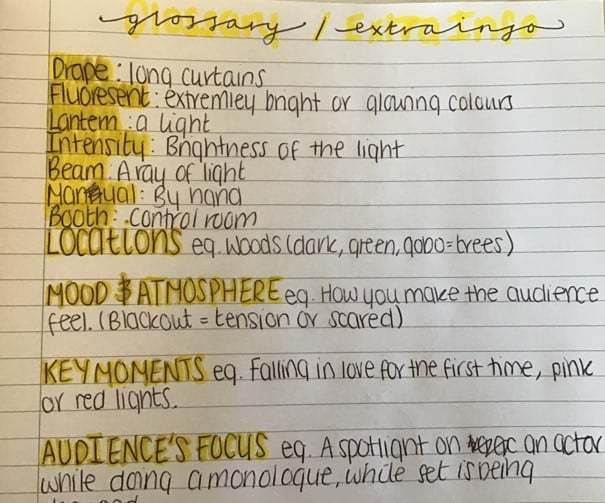 glossary / extra info
Drape : long curtains
Fluoresent : extremley bright or glowing colours
Lantern : a light
Intensity : Brightness of the light
Beam : A ray of light
Manual : By hand
Booth : Control room
LOCATIONS eg. Woods (dark, green, gobo=trees)
MOOD & ATMOSPHERE eg. How you make the audience
feel. (Blackout = tension or scared)
KEY MOMENTS eg. Falling in love for the first time, pink
or red lights.
AUDIENCE'S FOCUS eg. A spotlight on an actor
while doing a monologue, while set is being